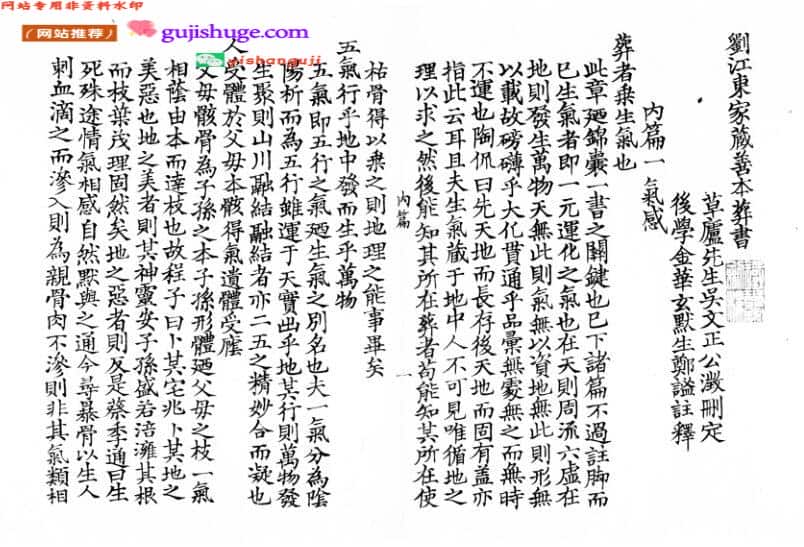 网站专用非资料水印
(网站推荐)
gujishuge.com
gishanguji
劉江東家蔵善本葬書
草廬先生吳文正公澂刪定
後學金華玄默生鄭謐註釋
内篇一 氣感
葬者乗生氣也
此章廼錦囊一書之關鍵也巳下諸篇不過註脚而
巳生氣者即一元運化之氣也在天則周流六虛在
地則發生萬物天無此則氣無以資地無此則形無
以載故磅礴乎大化貫通乎品彙無䖏無之而無時
不運也陶侃曰先天地而長存後天地而固有盖亦
指此云耳且夫生氣藏于地中人不可見唯循地之
理以求之然後能知其所在葬者苟能知其所在使
内篇
一
枯骨得以乗之則地理之能事畢矣
五氣行乎地中發而生乎萬物
五氣即五行之氣廼生氣之别名也夫一氣分為陰
陽析而為五行雖運于天實出乎地其行則萬物發
生聚則山川融結融結者亦二五之精妙合而凝也
人受體於父母本骸得氣遺體受廕
父母骸骨為子孫之本子孫形體廼父母之枝一氣
相蔭由本而達枝也故程子曰卜其宅兆卜其地之
美惡也地之美者則其神靈安子孫盛若涪濰其根
而枝葉茂理固然矣地之惡者則反是蔡季通曰生
死殊途情氣相感自然默與之通今尋暴骨以生人
刺血滴之而滲入則為親骨肉不滲則非其氣類相